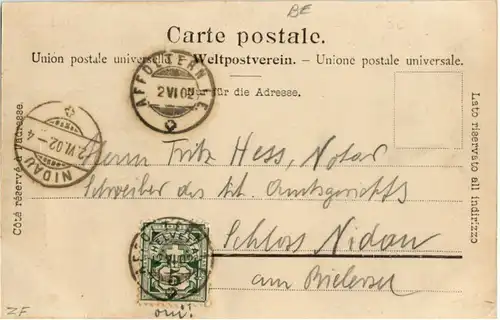 BE
Carte postale.
Union postale universelle. - Weltpostverein. - Unione postale universale.
für die Adresse.
AFFOLTERN i/E.
2 VI 02
NIDAU
2. VI. 02. - 4
Côté réservé à l'adresse.
Lato riservato all indirizzo
Herrn Fritz Hess, Notar
Schreiber des kt. Amtsgerichts
Schloss Nidau
am Bielersee
HELVETIA
5
ZF